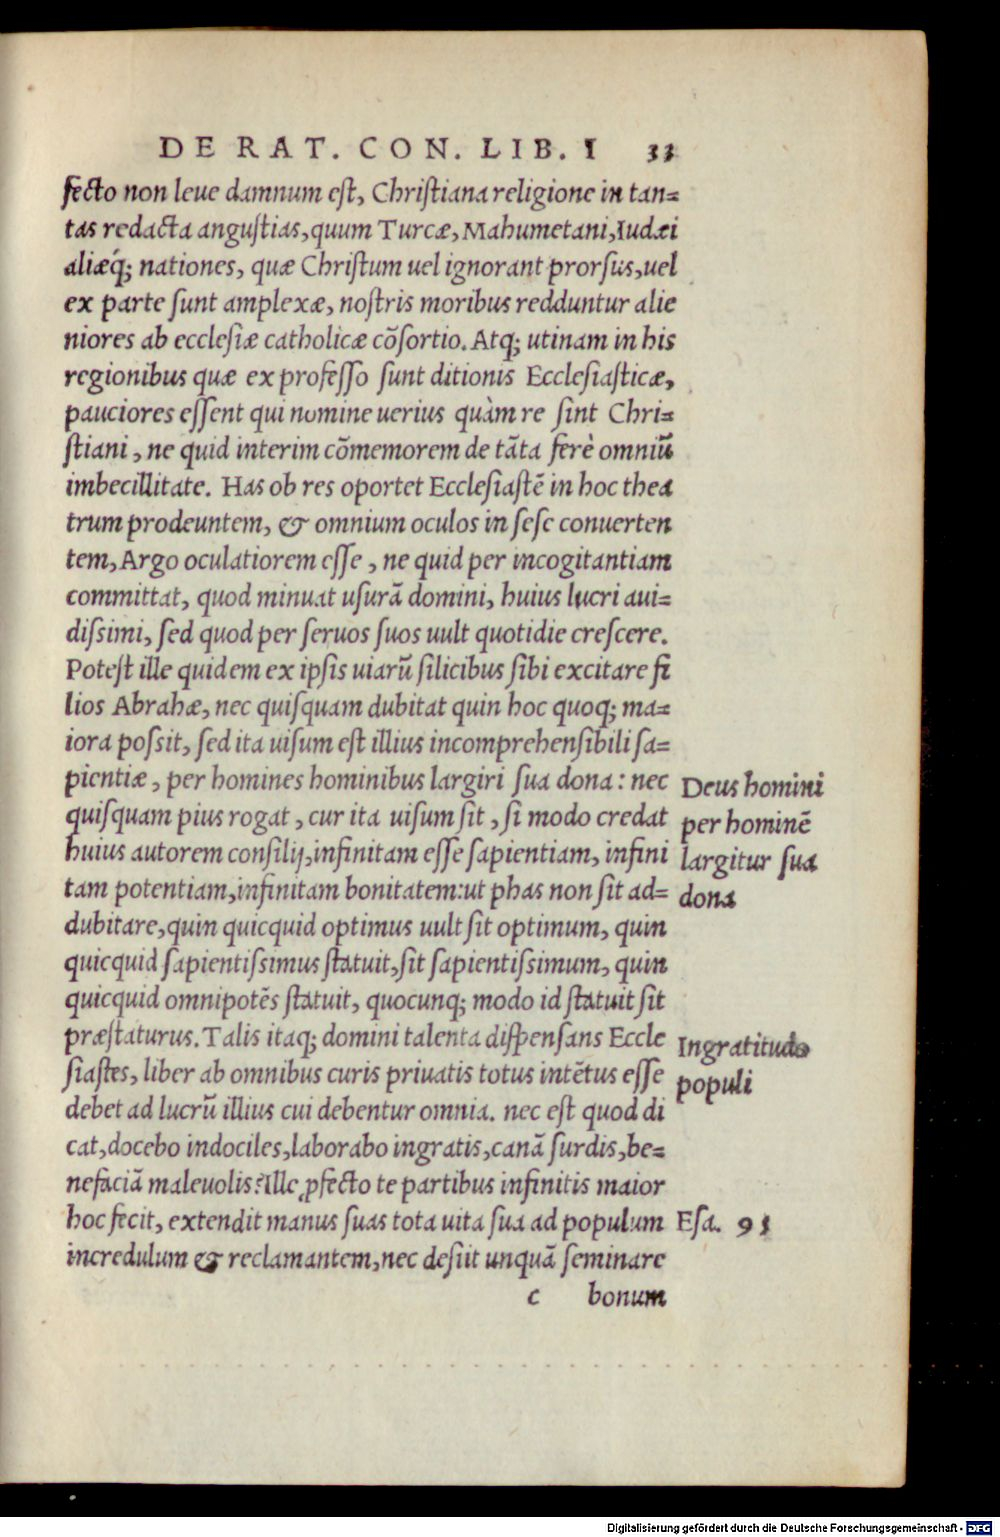 DE RAT. CON. LIB. I 33
fecto non leue damnum est, Christiana religione in tan=
tas redacta angustias, quum Turcæ, Mahumetani, Iudæi
aliæq́; nationes, quæ Christum uel ignorant prorsus, uel
ex parte sunt amplexæ, nostris moribus redduntur alie
niores ab ecclesiæ catholicæ cõsortio. Atq; utinam in his
regionibus quæ ex professo sunt ditionis Ecclesiasticæ,
pauciores essent qui nomine uerius quàm re sint Chri=
stiani, ne quid interim cõmemorem de tãta ferè omniũ
imbecillitate. Has ob res oportet Ecclesiastẽ in hoc thea
trum prodeuntem, & omnium oculos in sese conuerten
tem, Argo oculatiorem esse, ne quid per incogitantiam
committat, quod minuat usurã domini, huius lucri aui=
dissimi, sed quod per seruos suos uult quotidie crescere.
Potest ille quidem ex ipsis uiarũ silicibus sibi excitare fi
lios Abrahæ, nec quisquam dubitat quin hoc quoq; ma=
iora possit, sed ita uisum est illius incomprehensibili sa=
pientiæ, per homines hominibus largiri sua dona: nec
quisquam pius rogat, cur ita uisum sit, si modo credat
huius autorem consilij, infinitam esse sapientiam, infini
tam potentiam, infinitam bonitatem: ut phas non sit ad=
dubitare, quin quicquid optimus uult sit optimum, quin
quicquid sapientissimus statuit, sit sapientissimum, quin
quicquid omnipotẽs statuit, quocunq; modo id statuit sit
præstaturus. Talis itaq; domini talenta dispensans Eccle
siastes, liber ab omnibus curis priuatis totus intẽtus esse
debet ad lucrũ illius cui debentur omnia. nec est quod di
cat, docebo indociles, laborabo ingratis, canã surdis, be=
nefaciã maleuolis? Ille ꝓfecto te partibus infinitis maior
hoc fecit, extendit manus suas tota uita sua ad populum
incredulum & reclamantem, nec desiit unquã seminare
c bonum
Deus homini
per hominẽ
largitur sua
dona
Ingratitudo
populi
Esa. 95
Digitalisierung gefördert durch die Deutsche Forschungsgemeinschaft - DFG